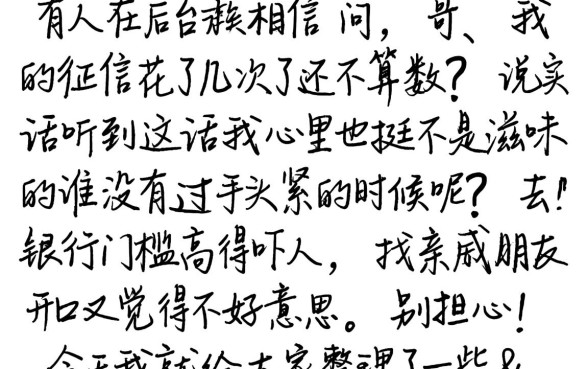 有人在后台族相信问，哥、我
的征信花了几次了还不算数？说实
话听到这话我心里也挺不是滋味
的谁没有过手头紧的时候呢？去！
银行门槛高得吓人，找亲戚朋友
开口又觉得不好意思。别担心！
今天我就给大家整理了一些&